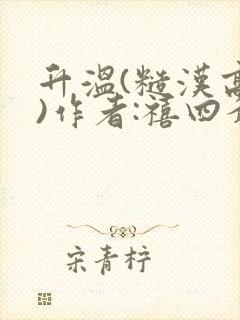 升温(糙漢高
)作者:禧四
宋青柠